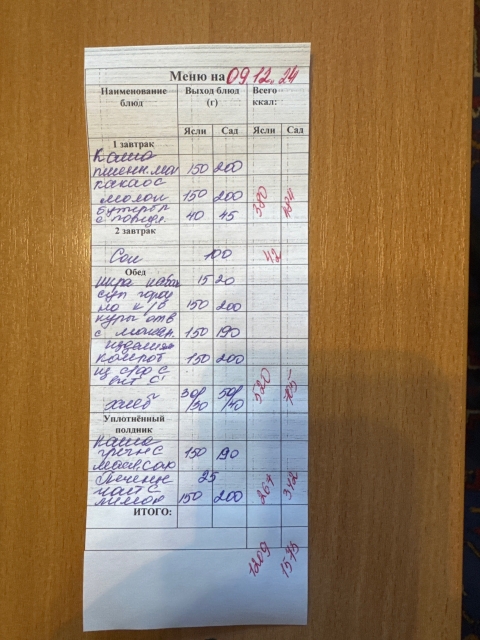 Меню на 09.12.24
Наименование блюд Выход блюд (г) Всего ккал:
Ясли Сад Ясли Сад
1 завтрак
Каша
пшенн. мол 150 200
какао с
молок 150 200
бутерб
с повидл. 40 45 380
2 завтрак
Сок 100 42
Обед
икра кабач 15 20
суп горо
на к/б 150 200
куры отв
с макан. 150 190
изделия
компот 150 200
из с/ф с
вит С 520
хлеб 30/30 50/40
Уплотнённый полдник
каша
гречн с 150 190
маслом
Печенье 25
чай с 267 342
лимон 150 200
ИТОГО:
1209 1575